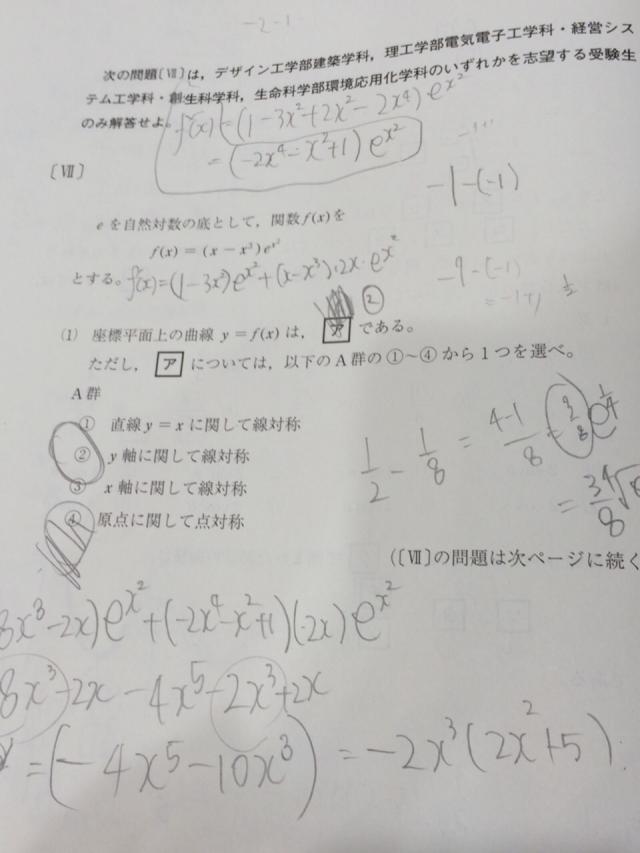 -2-1
次の問題〔Ⅶ〕は，デザイン工学部建築学科，理工学部電気電子工学科・経営シス
テム工学科・創生科学科，生命科学部環境応用化学科のいずれかを志望する受験生
のみ解答せよ。
f'(x)=(1-3x²+2x²-2x⁴)e^x²
=(-2x⁴-x²+1)e^x²
〔Ⅶ〕
-1-(-1)
e を自然対数の底として，関数 f(x) を
f(x) = (x − x³)e^x²
とする。
f'(x)=(1-3x²)e^x²+(x-x³)·2x·e^x²
-1-(-1)
=-1+1
1/2
②
(1) 座標平面上の曲線 y = f(x) は， ア である。
ただし， ア については，以下のA群の①〜④から1つを選べ。
A群
① 直線 y = x に関して線対称
② y 軸に関して線対称
③ x 軸に関して線対称
④ 原点に関して点対称
1/2 - 1/8 = (4-1)/8 = 3/8 e^1/4
= 3⁴√e/8
(〔Ⅶ〕の問題は次ページに続く
8x³-2x)e^x²+(-2x⁴-x²+1)(-2x)e^x²
8x³-2x-4x⁵-2x³+2x
=(-4x⁵-10x³) = -2x³(2x²+5)